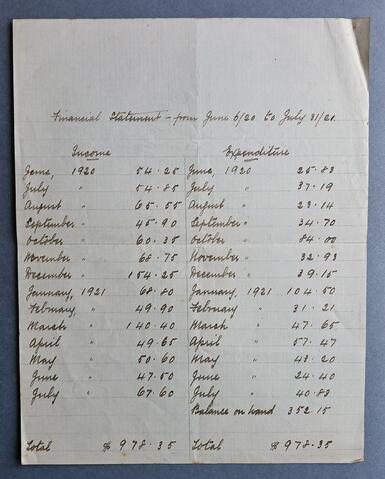 Financial Statement – from June 6/20 to July 31/21.
Income Expenditure
June, 1920 54.25 June, 1920 25.83
July " 54.85 July " 37.19
August " 65.55 August " 23.14
September " 45.90 September " 34.70
October " 60.35 October " 84.00
November " 68.75 November " 32.93
December " 154.25 December " 39.15
January, 1921 68.80 January, 1921 104.50
February, " 49.90 February " 31.21
March " 140.40 March " 47.65
April " 49.65 April " 57.47
May " 50.60 May " 43.20
June " 47.50 June " 24.40
July " 67.60 July " 40.83
Balance on hand 352.15
Total $ 978.35 Total $ 978.35